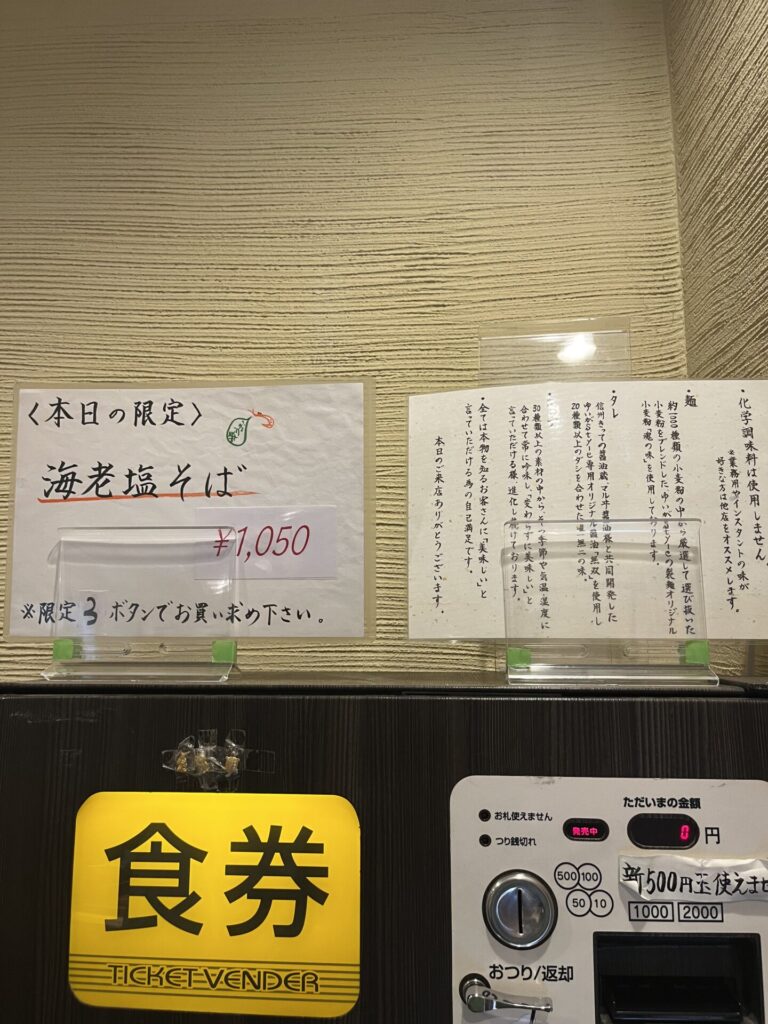 〈本日の限定〉
海老塩そば
¥1,050
※限定3ボタンでお買い求め下さい。
・化学調味料は使用しません。
※業務用やインスタントの味が
好きな方は他店をオススメします。
・麺
約100種類の小麦粉の中から厳選して選び抜いた
小麦粉をブレンドしたゆいがるセブーヒの製麺オリジナル
小麦粉「魂の味」を使用しております。
・タレ
信州きっての醤油蔵マルヰ醤油様と共同開発した
専用オリジナル醤油「無双」を使用し
20種類以上のダシを合わせた唯一無二の味。
30種類以上の素材の中からその季節や気温・湿度に
合わせて常に吟味し、「変わらずに美味しい」と
言っていただける様、進化し続けております。
・全ては本物を知るお客さんに「美味しい」と
言っていただける為の自己満足です。
本日のご来店ありがとうございます。
食券
TICKET VENDER
お札使えません
つり銭切れ
発売中
ただいまの金額
0円
新500円玉使えませ
500 100
50 10
1000 2000
おつり/返却